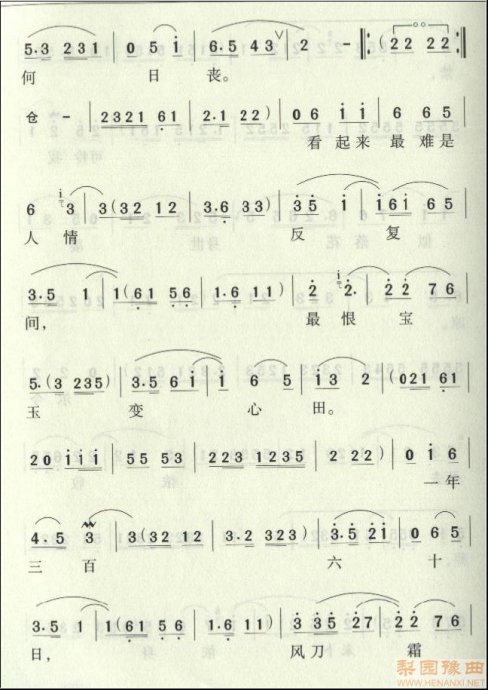 5·3 231 | 0 5 i | 6·5 43 | 2 - ‖: (22 22 :‖
何 日 丧。
仓 - | 2321 61 | 2·1 22) | 06 ii | 6 65
看起来 最难是
6 i3 | 3(32 12 | 3·6 33) | 35 i | i6i 65
人 情 反 复
3·5 1 | 1(61 56 | 1·6 11) | 2 i2· | 22 76
间, 最 恨 宝
5·(3 235) | 3·5 6i | i 6 5 | i3 2 | (021 61
玉 变 心 田。
20 iii | 55 53 | 223 1235 | 2 22) | 0 i 6
一年
4·5 3 | 3(32 12 | 3·2 323) | 3·5 2i | 0 65
三 百 六 十
3·5 1 | 1(61 56 | 1·6 11) | 3 3527 | 22 76
日, 风刀 霜
梨园豫曲
WWW.HENANXI.NET